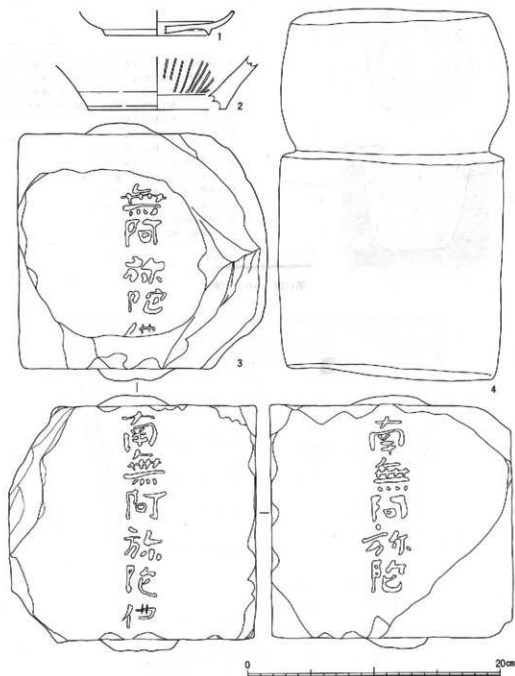 1
2
無阿弥陀仏
3
4
南無阿弥陀仏
南無阿弥陀
0
20cm